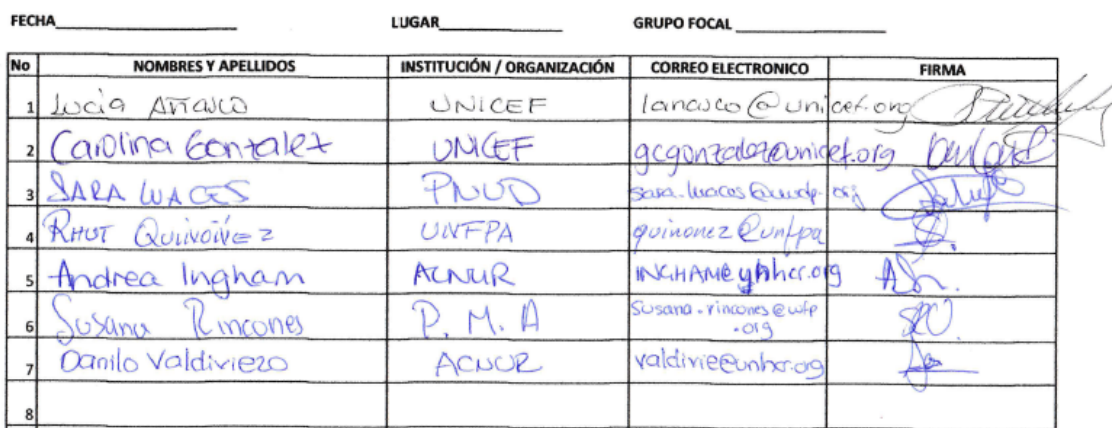 FECHA LUGAR GRUPO FOCAL
No NOMBRES Y APELLIDOS INSTITUCIÓN / ORGANIZACIÓN CORREO ELECTRONICO FIRMA
1 Lucía Añasco UNICEF lanasco@unicef.org
2 Carolina Gonzalez UNICEF gcgonzalez@unicef.org
3 SARA PNUD
4 RHUT Quiñónez UNFPA quinonez@unfpa
5 Andrea Ingham ACNUR INGHAM@unhcr.org
6 Susana Rincones P. M. A susana.rincones@wfp
.org
7 Danilo Valdiviezo ACNUR valdivie@unhcr.org
8